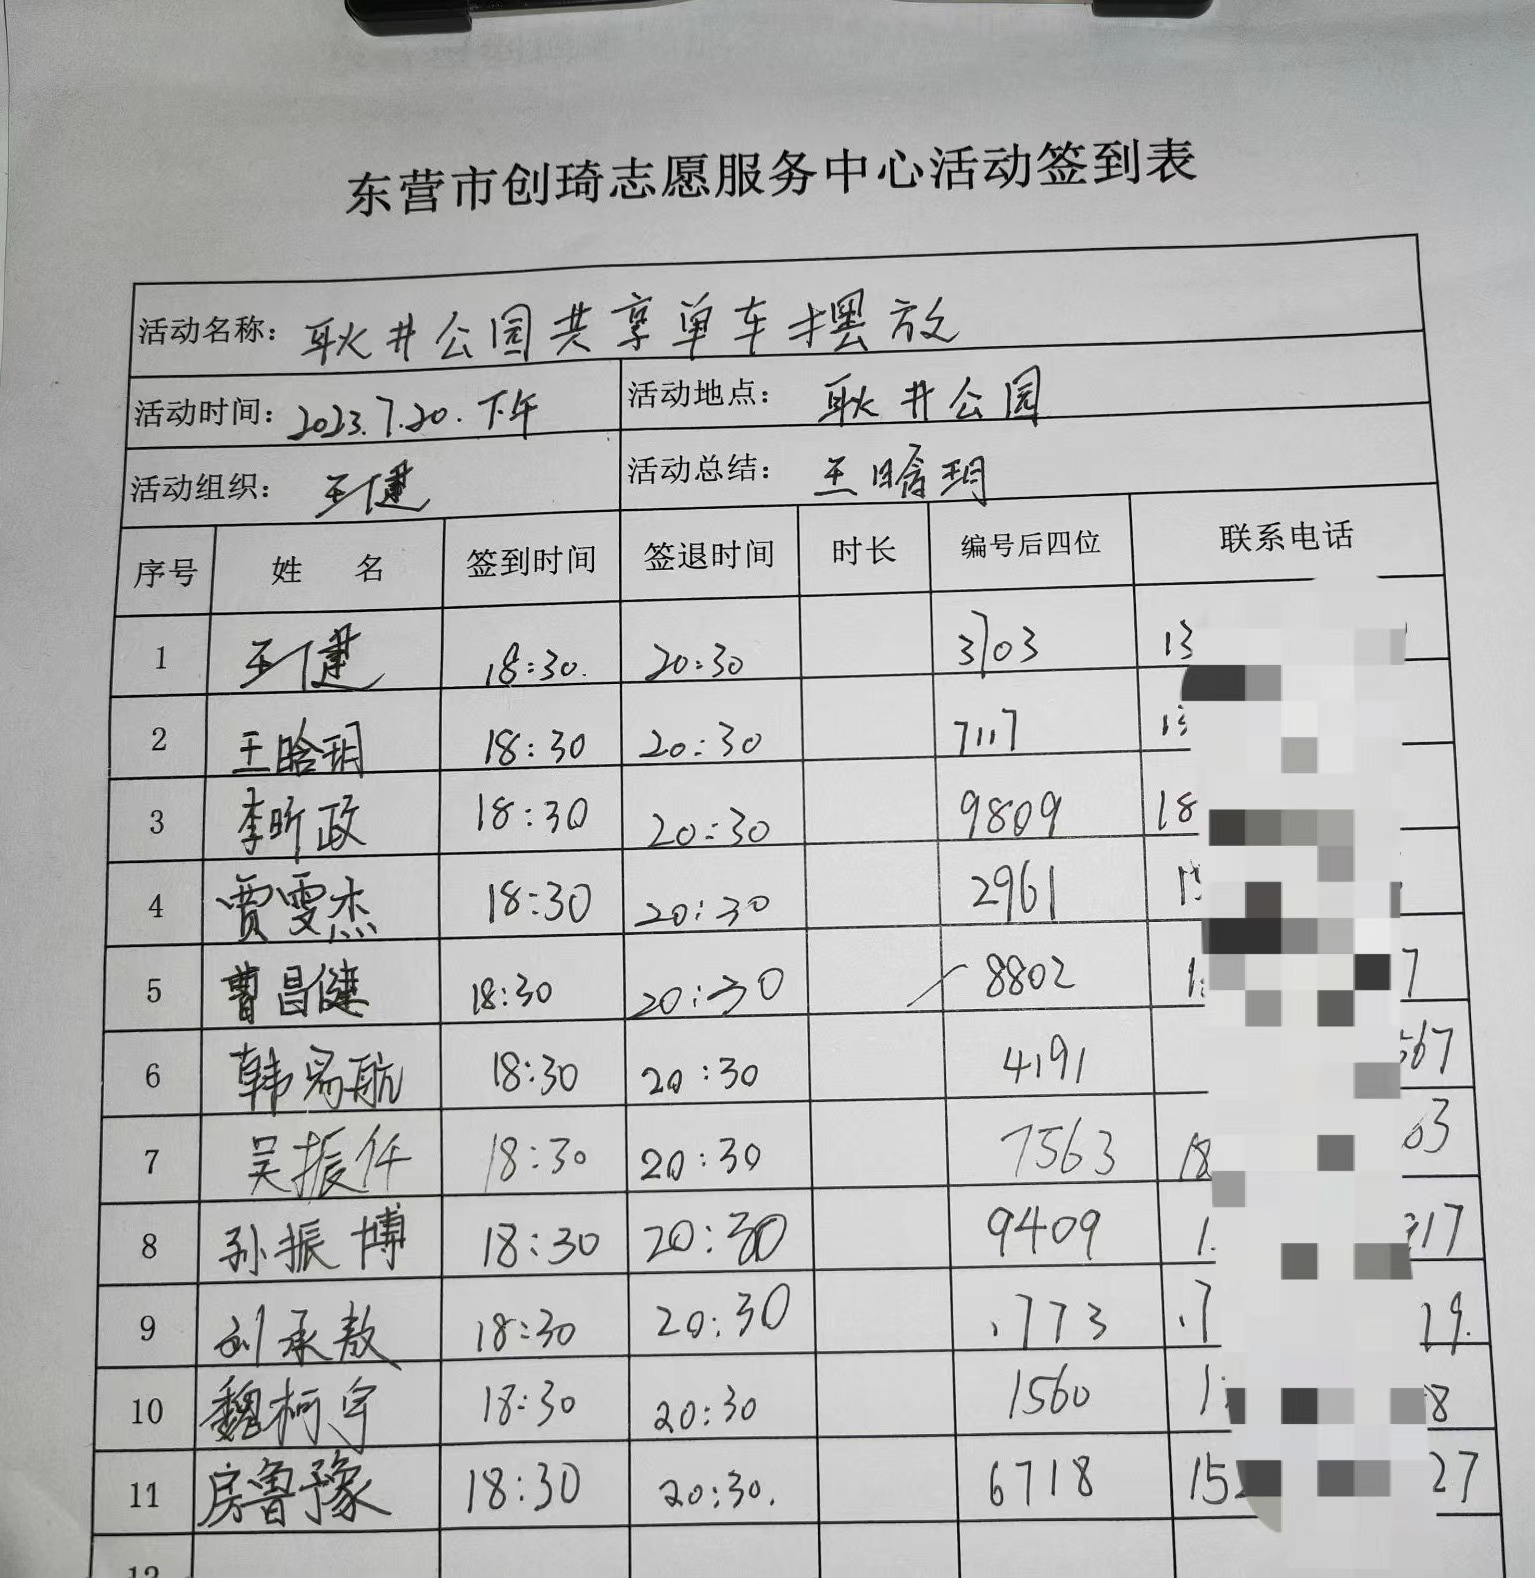 东营市创琦志愿服务中心活动签到表
活动名称：耿井公园共享单车摆放
活动时间：2023.7.20.下午 活动地点：耿井公园
活动组织：王健 活动总结：王晗玥
序号 姓 名 签到时间 签退时间 时长 编号后四位 联系电话
1 王健 18:30. 20:30 3703 13
2 王晗玥 18:30 20:30 7117 13
3 李昕政 18:30 20:30 9809 18
4 贾雯杰 18:30 20:30 2961
5 曹昌健 18:30 20:30 8802 7
6 韩易航 18:30 20:30 4191 567
7 吴振仟 18:30 20:30 7563 18 03
8 孙振博 18:30 20:30 9409 1 17
9 刘承敖 18:30 20:30 .773 .7 19.
10 魏柯宇 18:30 20:30 1560 1 8
11 房鲁豫 18:30 20:30. 6718 15 27
12